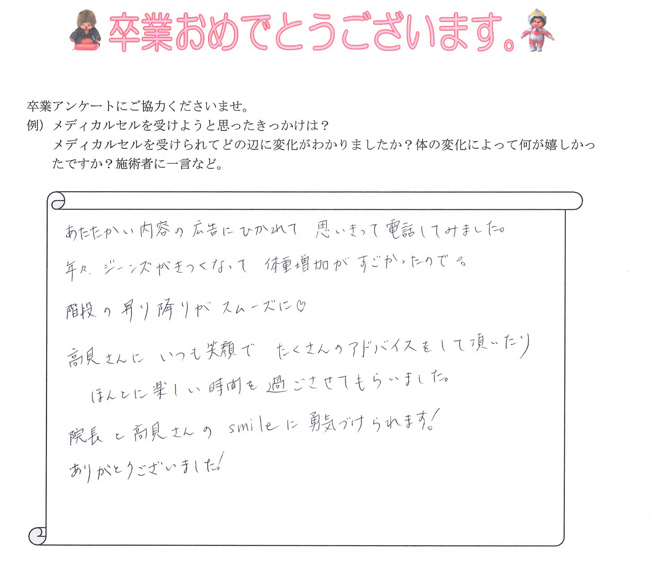 卒業おめでとうございます。
卒業アンケートにご協力くださいませ。
例）メディカルセルを受けようと思ったきっかけは？
メディカルセルを受けられてどの辺に変化がわかりましたか？体の変化によって何が嬉しかっ
たですか？施術者に一言など。
あたたかい内容の広告にひかれて 思いきって電話してみました。
年々 ジーンズがきつくなって 体重増加がすごかったので。
階段の昇り降りがスムーズに♡
高見さんに いつも笑顔で たくさんのアドバイスをして頂いたり
ほんとに楽しい時間を過ごさせてもらいました。
院長と高見さんの smileに 勇気づけられます!
ありがとうございました!